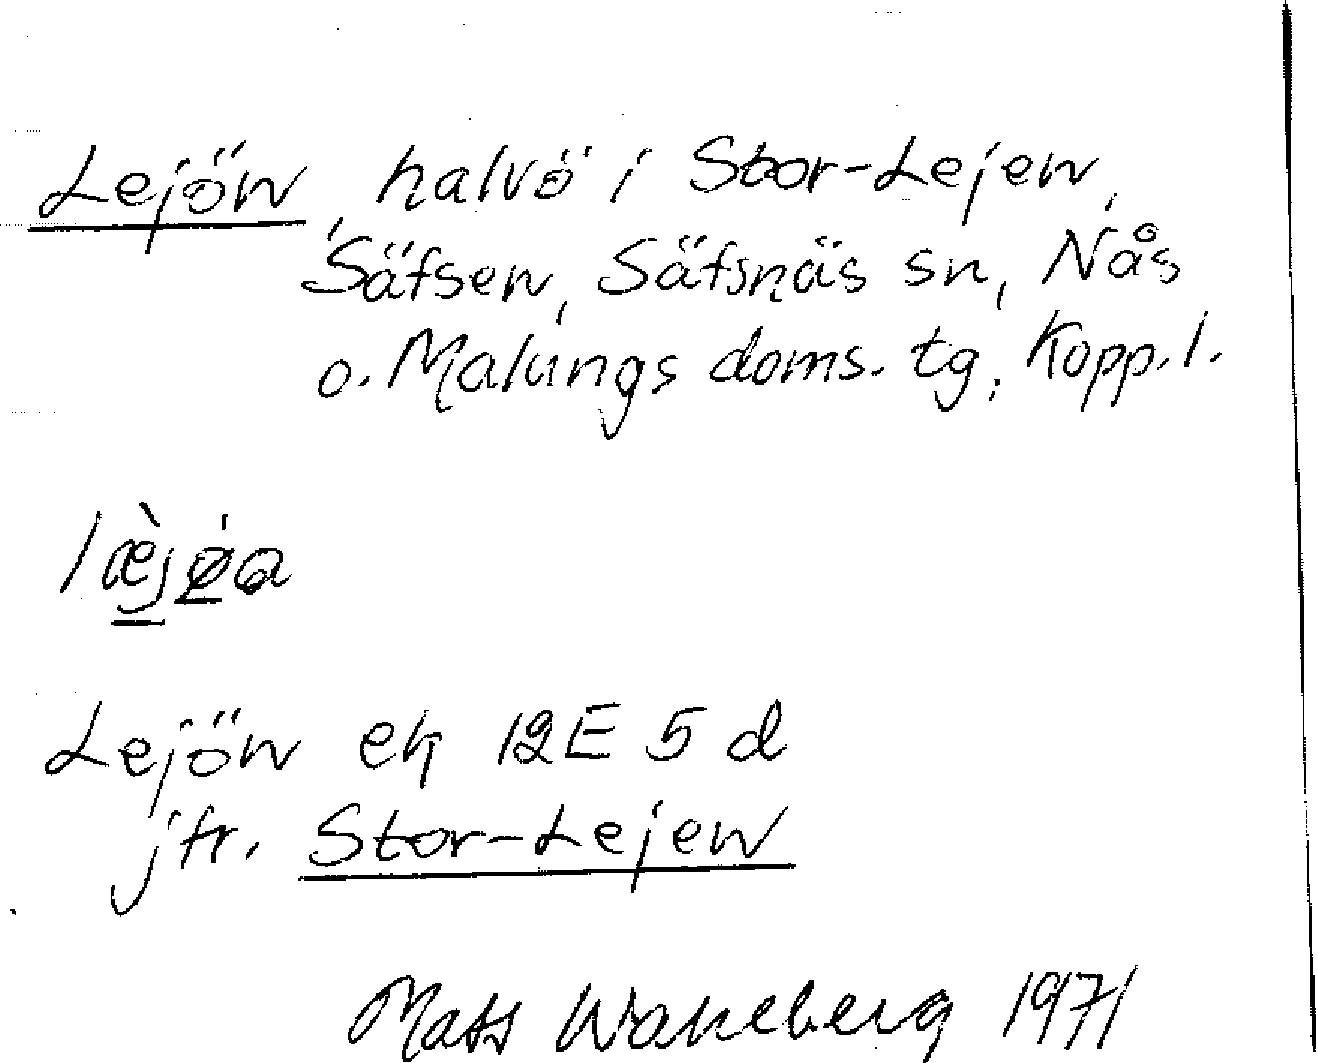 Lejön, halvö i Stor-Lejen,
Säfsen, Säfsnäs sn, Nås
o. Malungs doms. tg, Kopp. l.
læ̀jø̀a
Lejön ek 12E 5 d
jfr. Stor-Lejen
Mats Wahlberg 1971